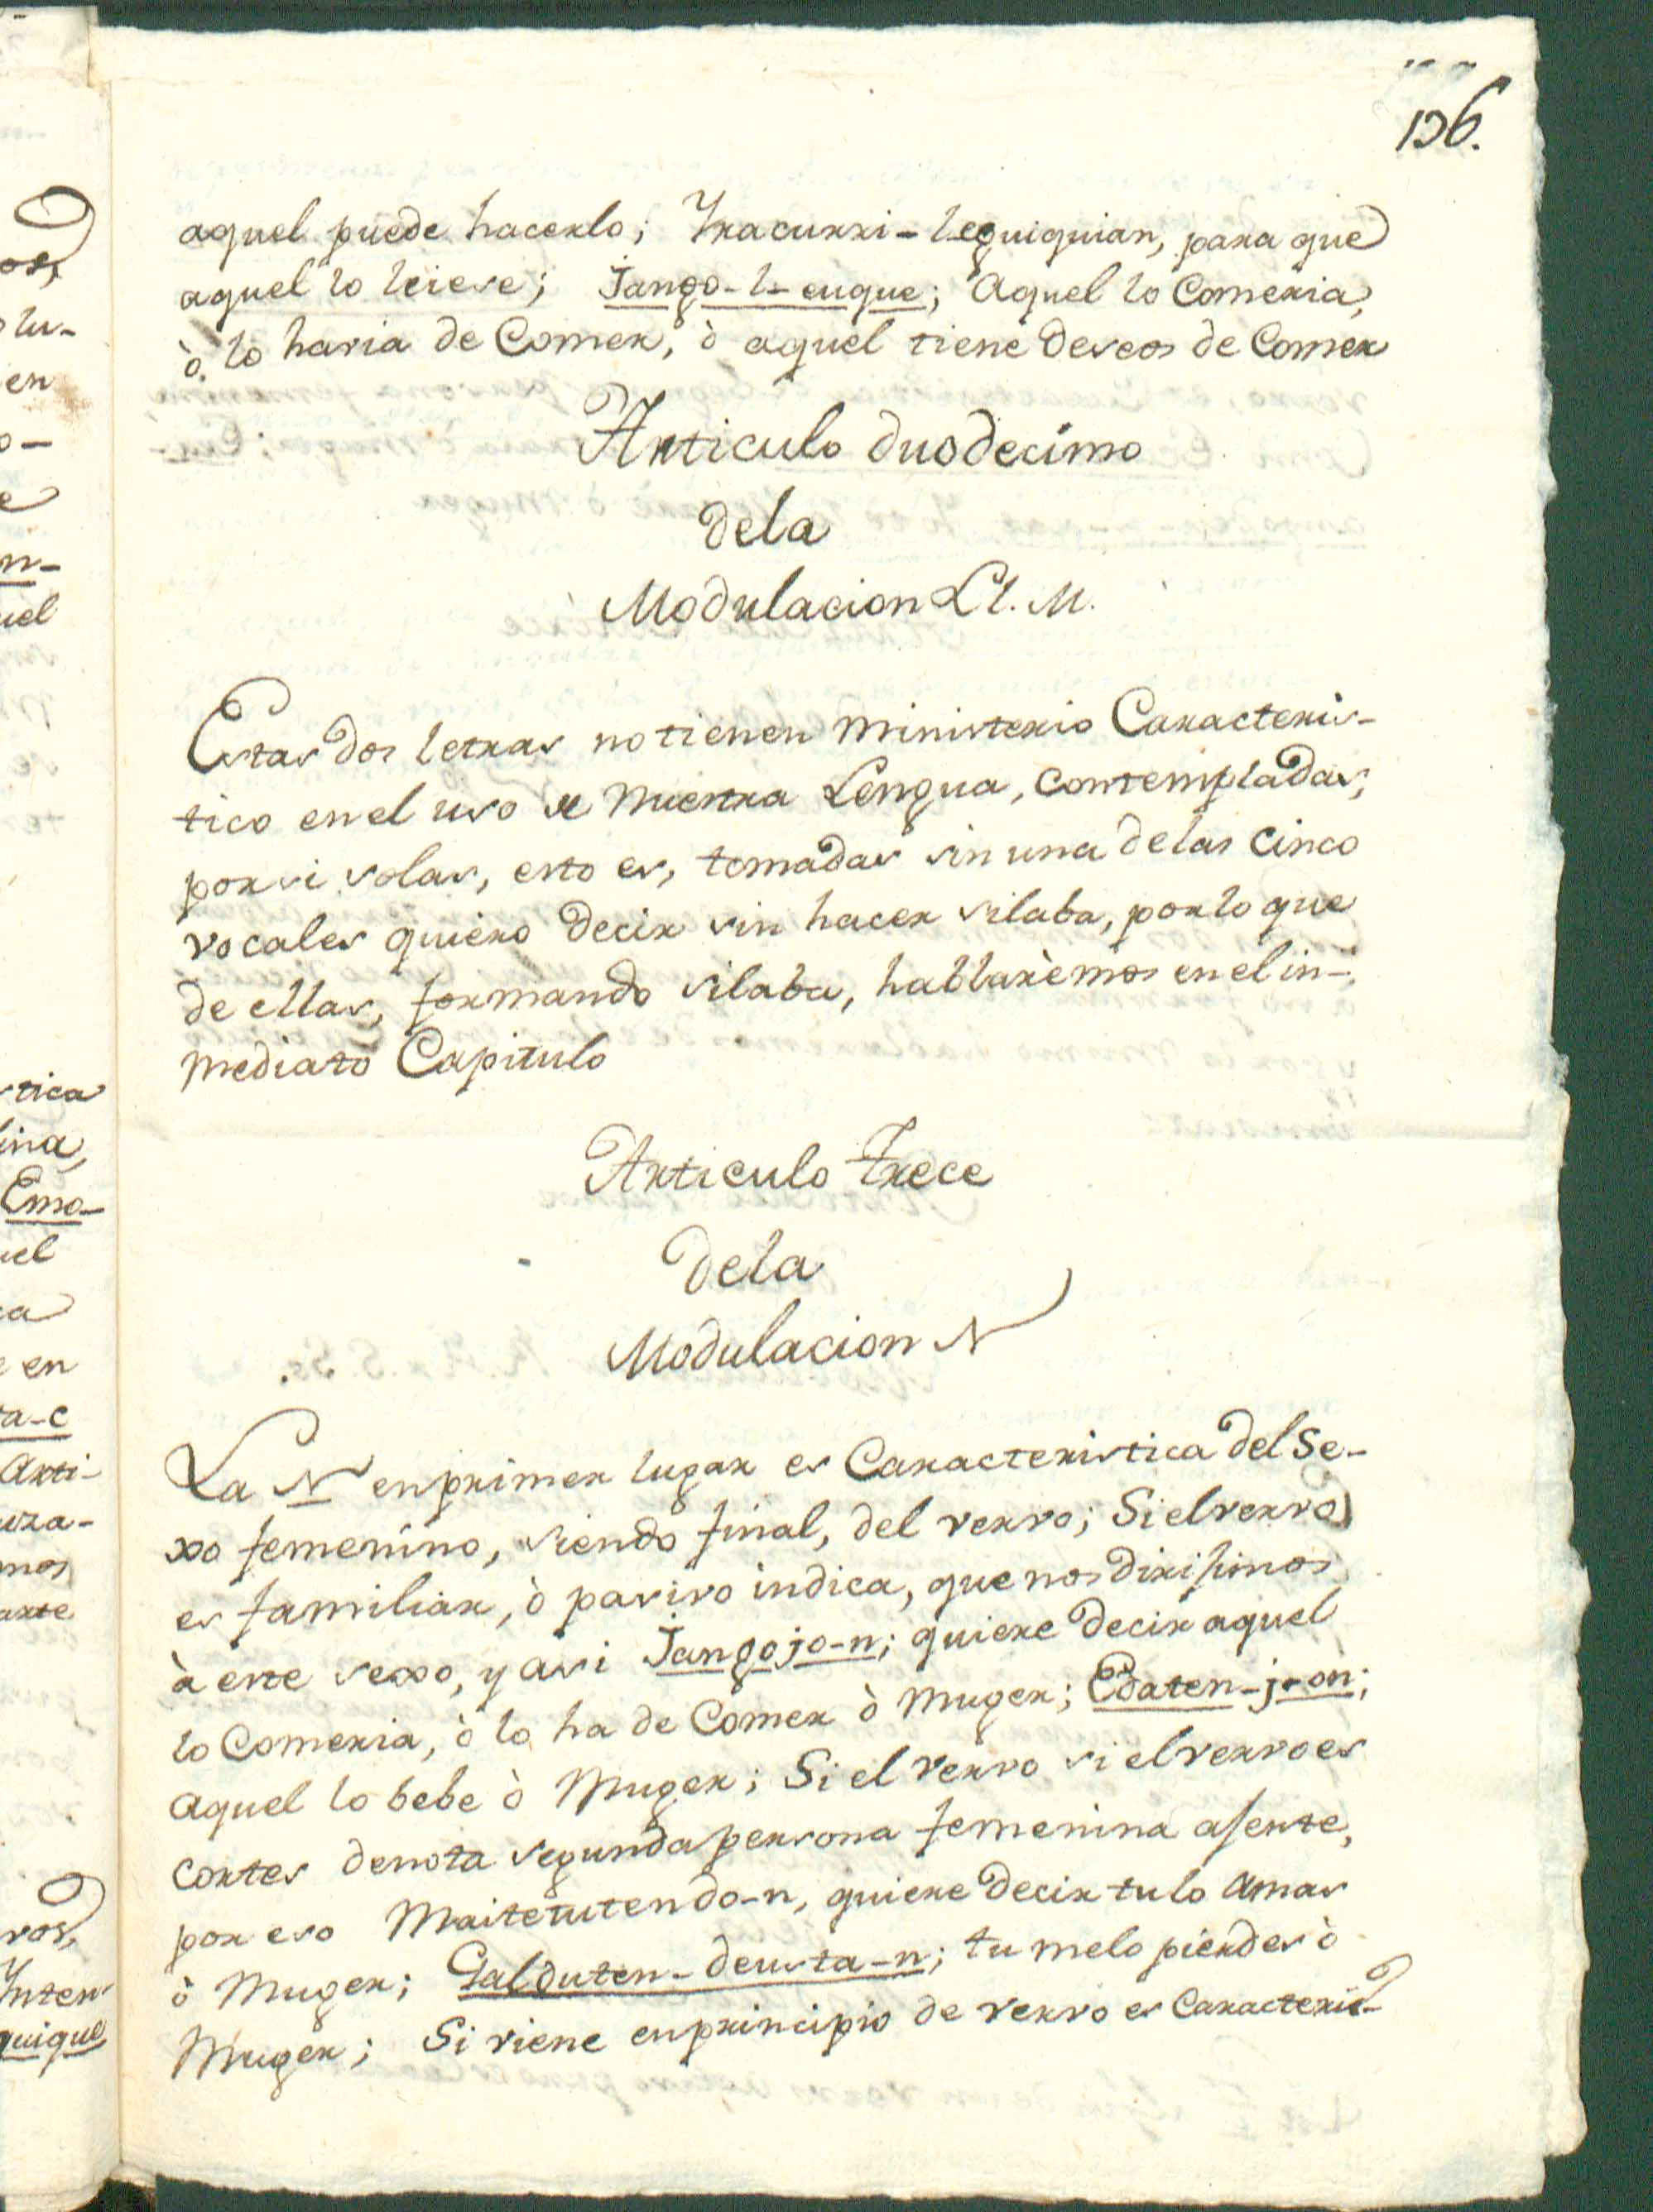 136.
aquel puede hacerlo; Iracurri-lequiquian, para que
aquel lo leiese; Jango-l-euque; Aquel lo Comeria,
ò lo haria de Comer, ò aquel tiene deseos de Comer
Articulo duodecimo
dela
Modulacion Ll. M.
Estas dos letras no tienen ministerio Caracteris-
tico en el uso de nuestra Lengua, contempladas,
por si solas, esto es, tomadas sin una delas cinco
vocales quiero decir sin hacer silaba, por lo que
de ellas, formando silaba, hablarèmos en el in-
mediato Capitulo
Articulo trece
dela
Modulacion N
La N en primer lugar es Caracteristica del Se-
xo femenino, siendo final, del vervo; Si el vervo
es familiar, ò pasivo indica, que nos dirijimos
à este sexo, y asi Jangojo-n; quiere decir aquel
lo Comeria, ò lo ha de Comer ò Muger; Edaten-j-on;
aquel lo bebe ò Muger; Si el vervo si el vervo es
cortes denota segunda persona femenina asente,
por eso Maitetutendo-n, quiere decir tu lo amas
ò Muger; Galduten-deusta-n; tu melo pierdes ò
Muger; Si viene en principio de vervo es Caracteris-
os,
lu-
en
o-
e
n-
uel
tica
ina,
Emo-
uel
ca
e en
ta-c
Arti-
uza-
mos
arte
vos,
Inten-
quique